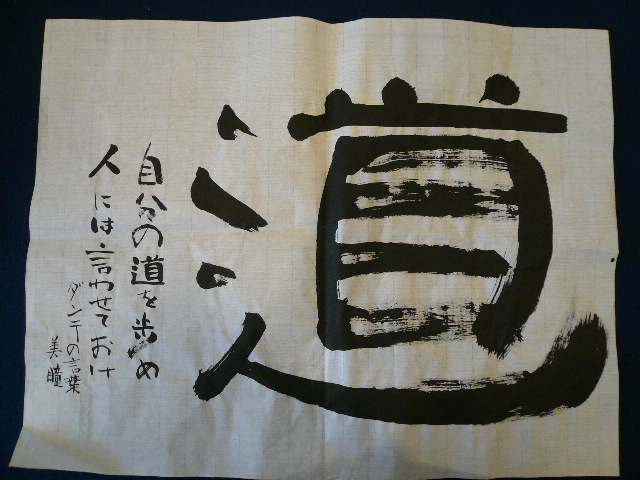 道
自分の道を歩め
人には言わせておけ
ダンテの言葉
美瞳